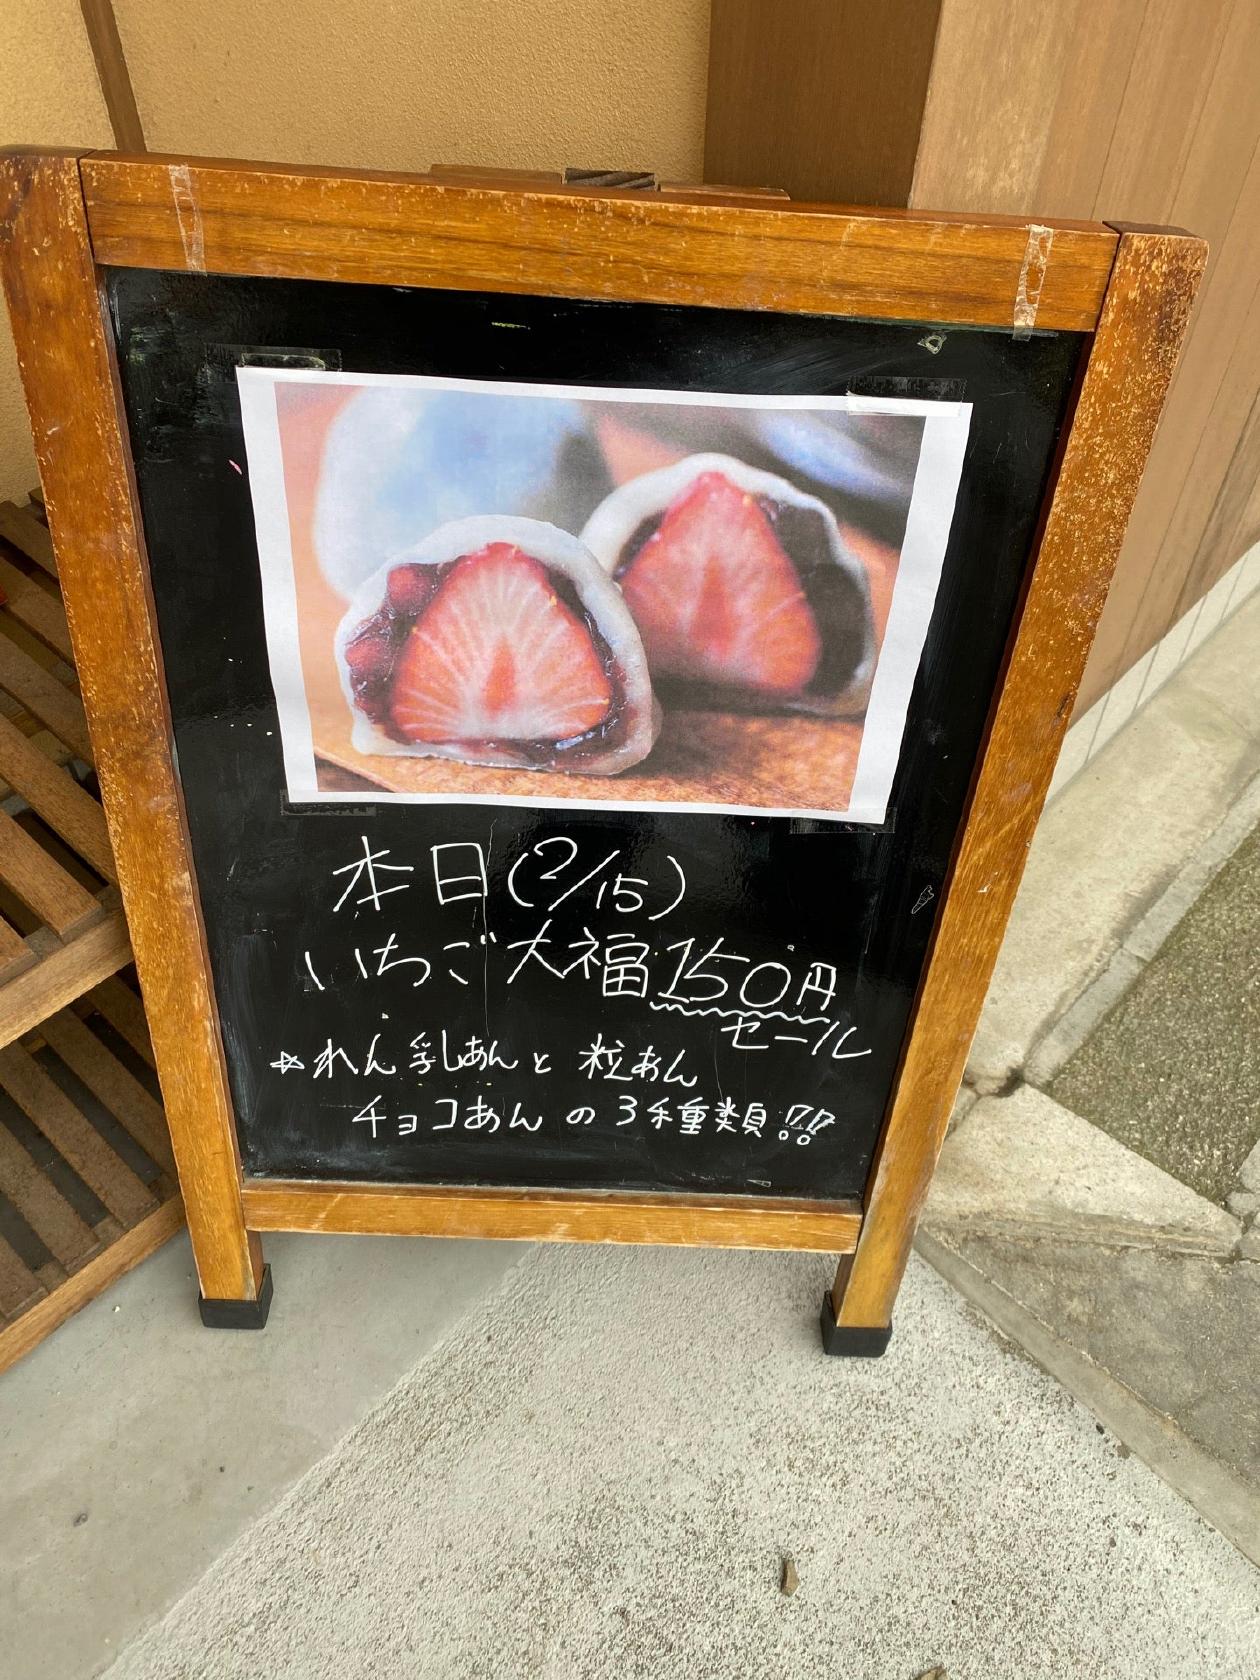 本日(2/15)
いちご大福150円
セール
☆れん乳あんと粒あん
チョコあんの3種類!!